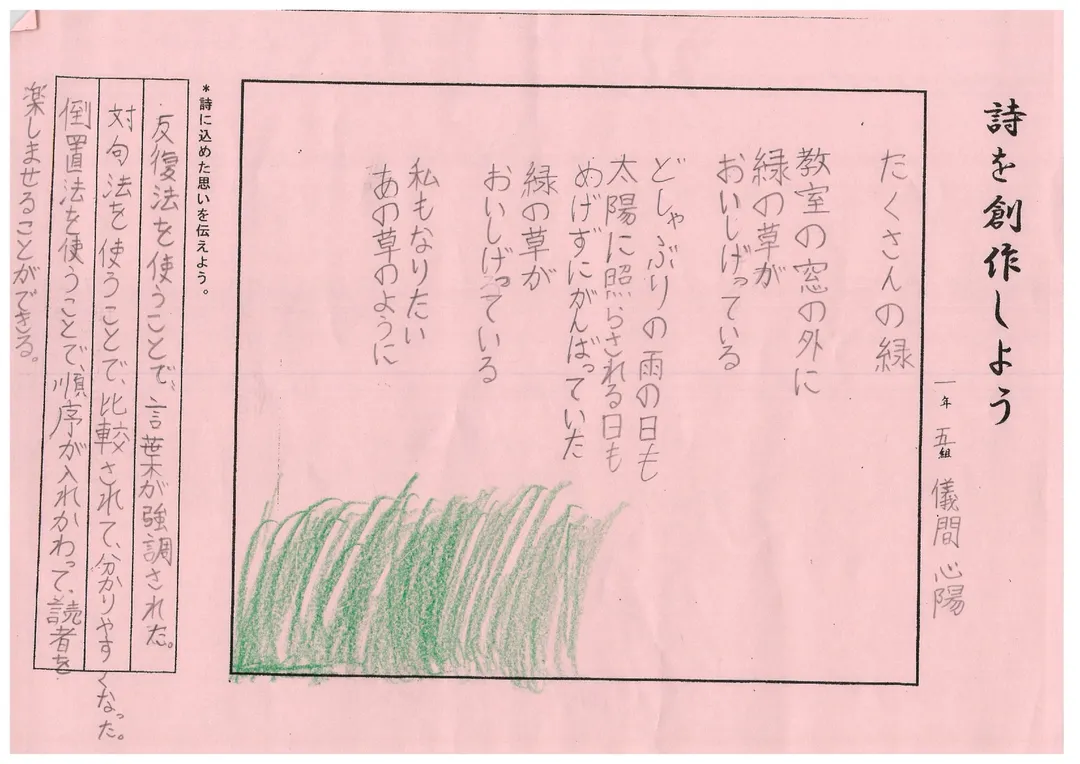 詩を創作しよう
一年 五組 儀間 心陽
たくさんの緑
教室の窓の外に
緑の草が
おいしげっている
どしゃぶりの雨の日も
太陽に照らされる日も
めげずにがんばっていた
緑の草が
おいしげっている
私もなりたい
あの草のように
*詩に込めた思いを伝えよう。
反復法を使うことで、言葉が強調された。
対句法を使うことで、比較されて、分かりやすくなった。
倒置法を使うことで、順序が入れかわって、読者を
楽しませることができる。